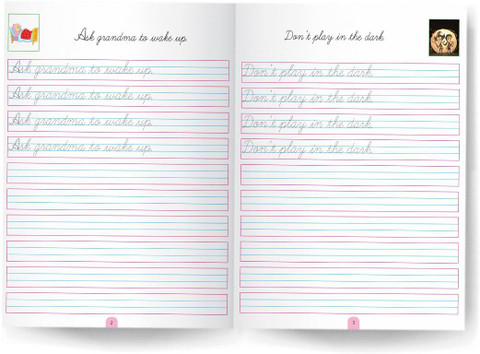 Ask grandma to wake up.
Ask grandma to wake up.
Ask grandma to wake up.
Ask grandma to wake up.
Ask grandma to wake up.
2
Don't play in the dark
Don't play in the dark
Don't play in the dark
Don't play in the dark
Don't play in the dark
3